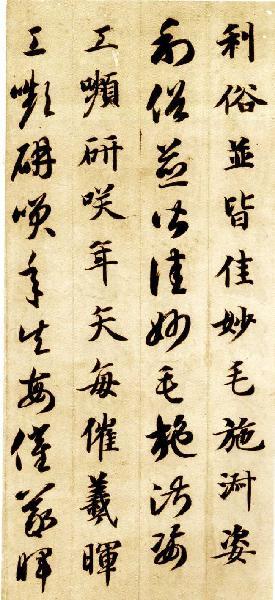 利俗並皆佳妙毛施淑姿
利俗並皆佳妙毛施淑姿
工嚬研咲年矢每催羲暉
工嚬研咲年矢每催羲暉